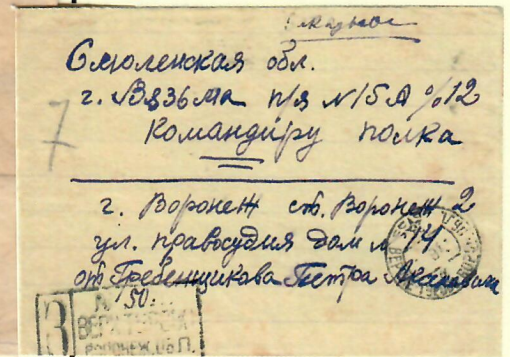 Заказное
Смоленская обл.
г. Вязьма п/я № 15 А
Командиру полка
г. Воронеж ст. Воронеж 2
ул. правосудия дом № 14
от Гребенщикова Петра
7
З
50
ВОРОНЕЖ. ОБЛ.